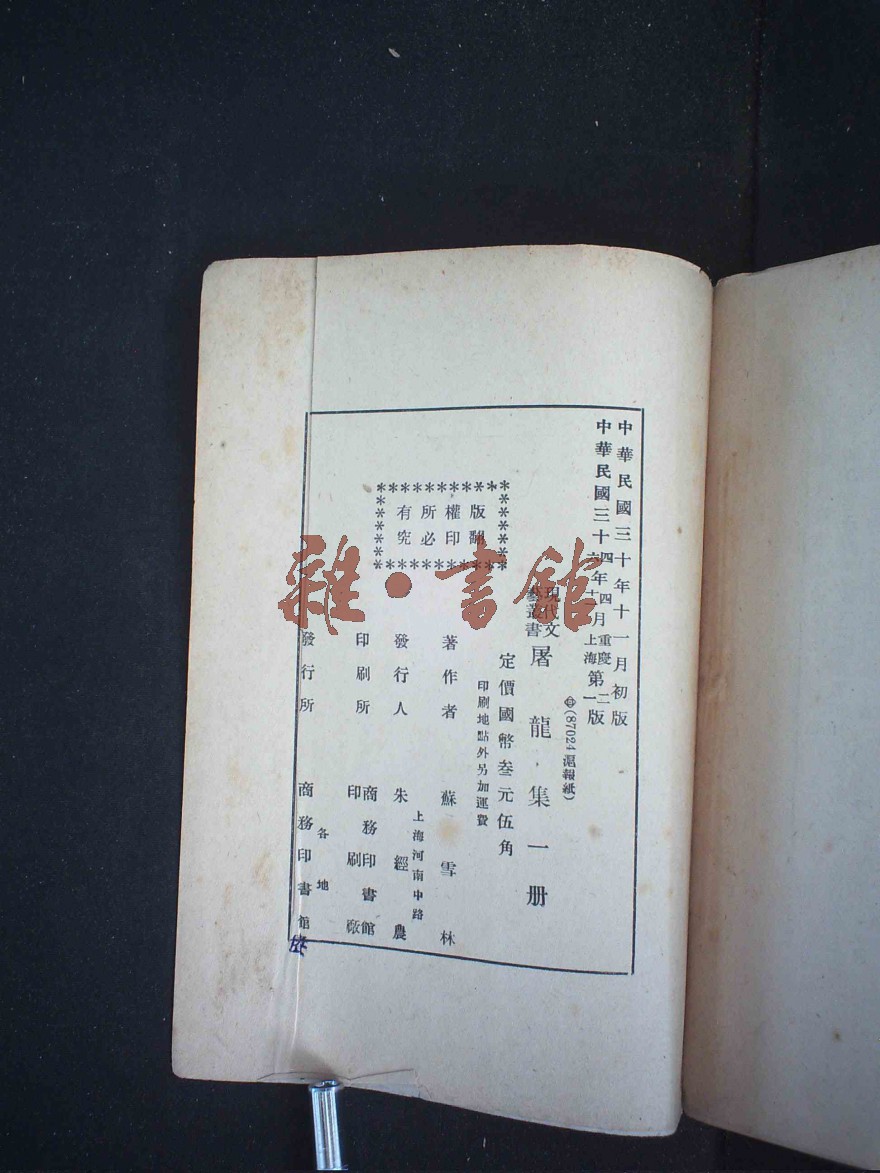 中華民國三十年十一月初版
中華民國三十四年四月重慶第二版
六年十一月上海第一版
⊕(87024滬報紙)
現代文
藝叢書
屠龍集一册
定價國幣叁元伍角
印刷地點外另加運費
版權所有
翻印必究
著作者 蘇雪林
上海河南中路
發行人 朱經農
印刷所 商務印書館
印刷廠
各地
發行所 商務印書館
雜·書館